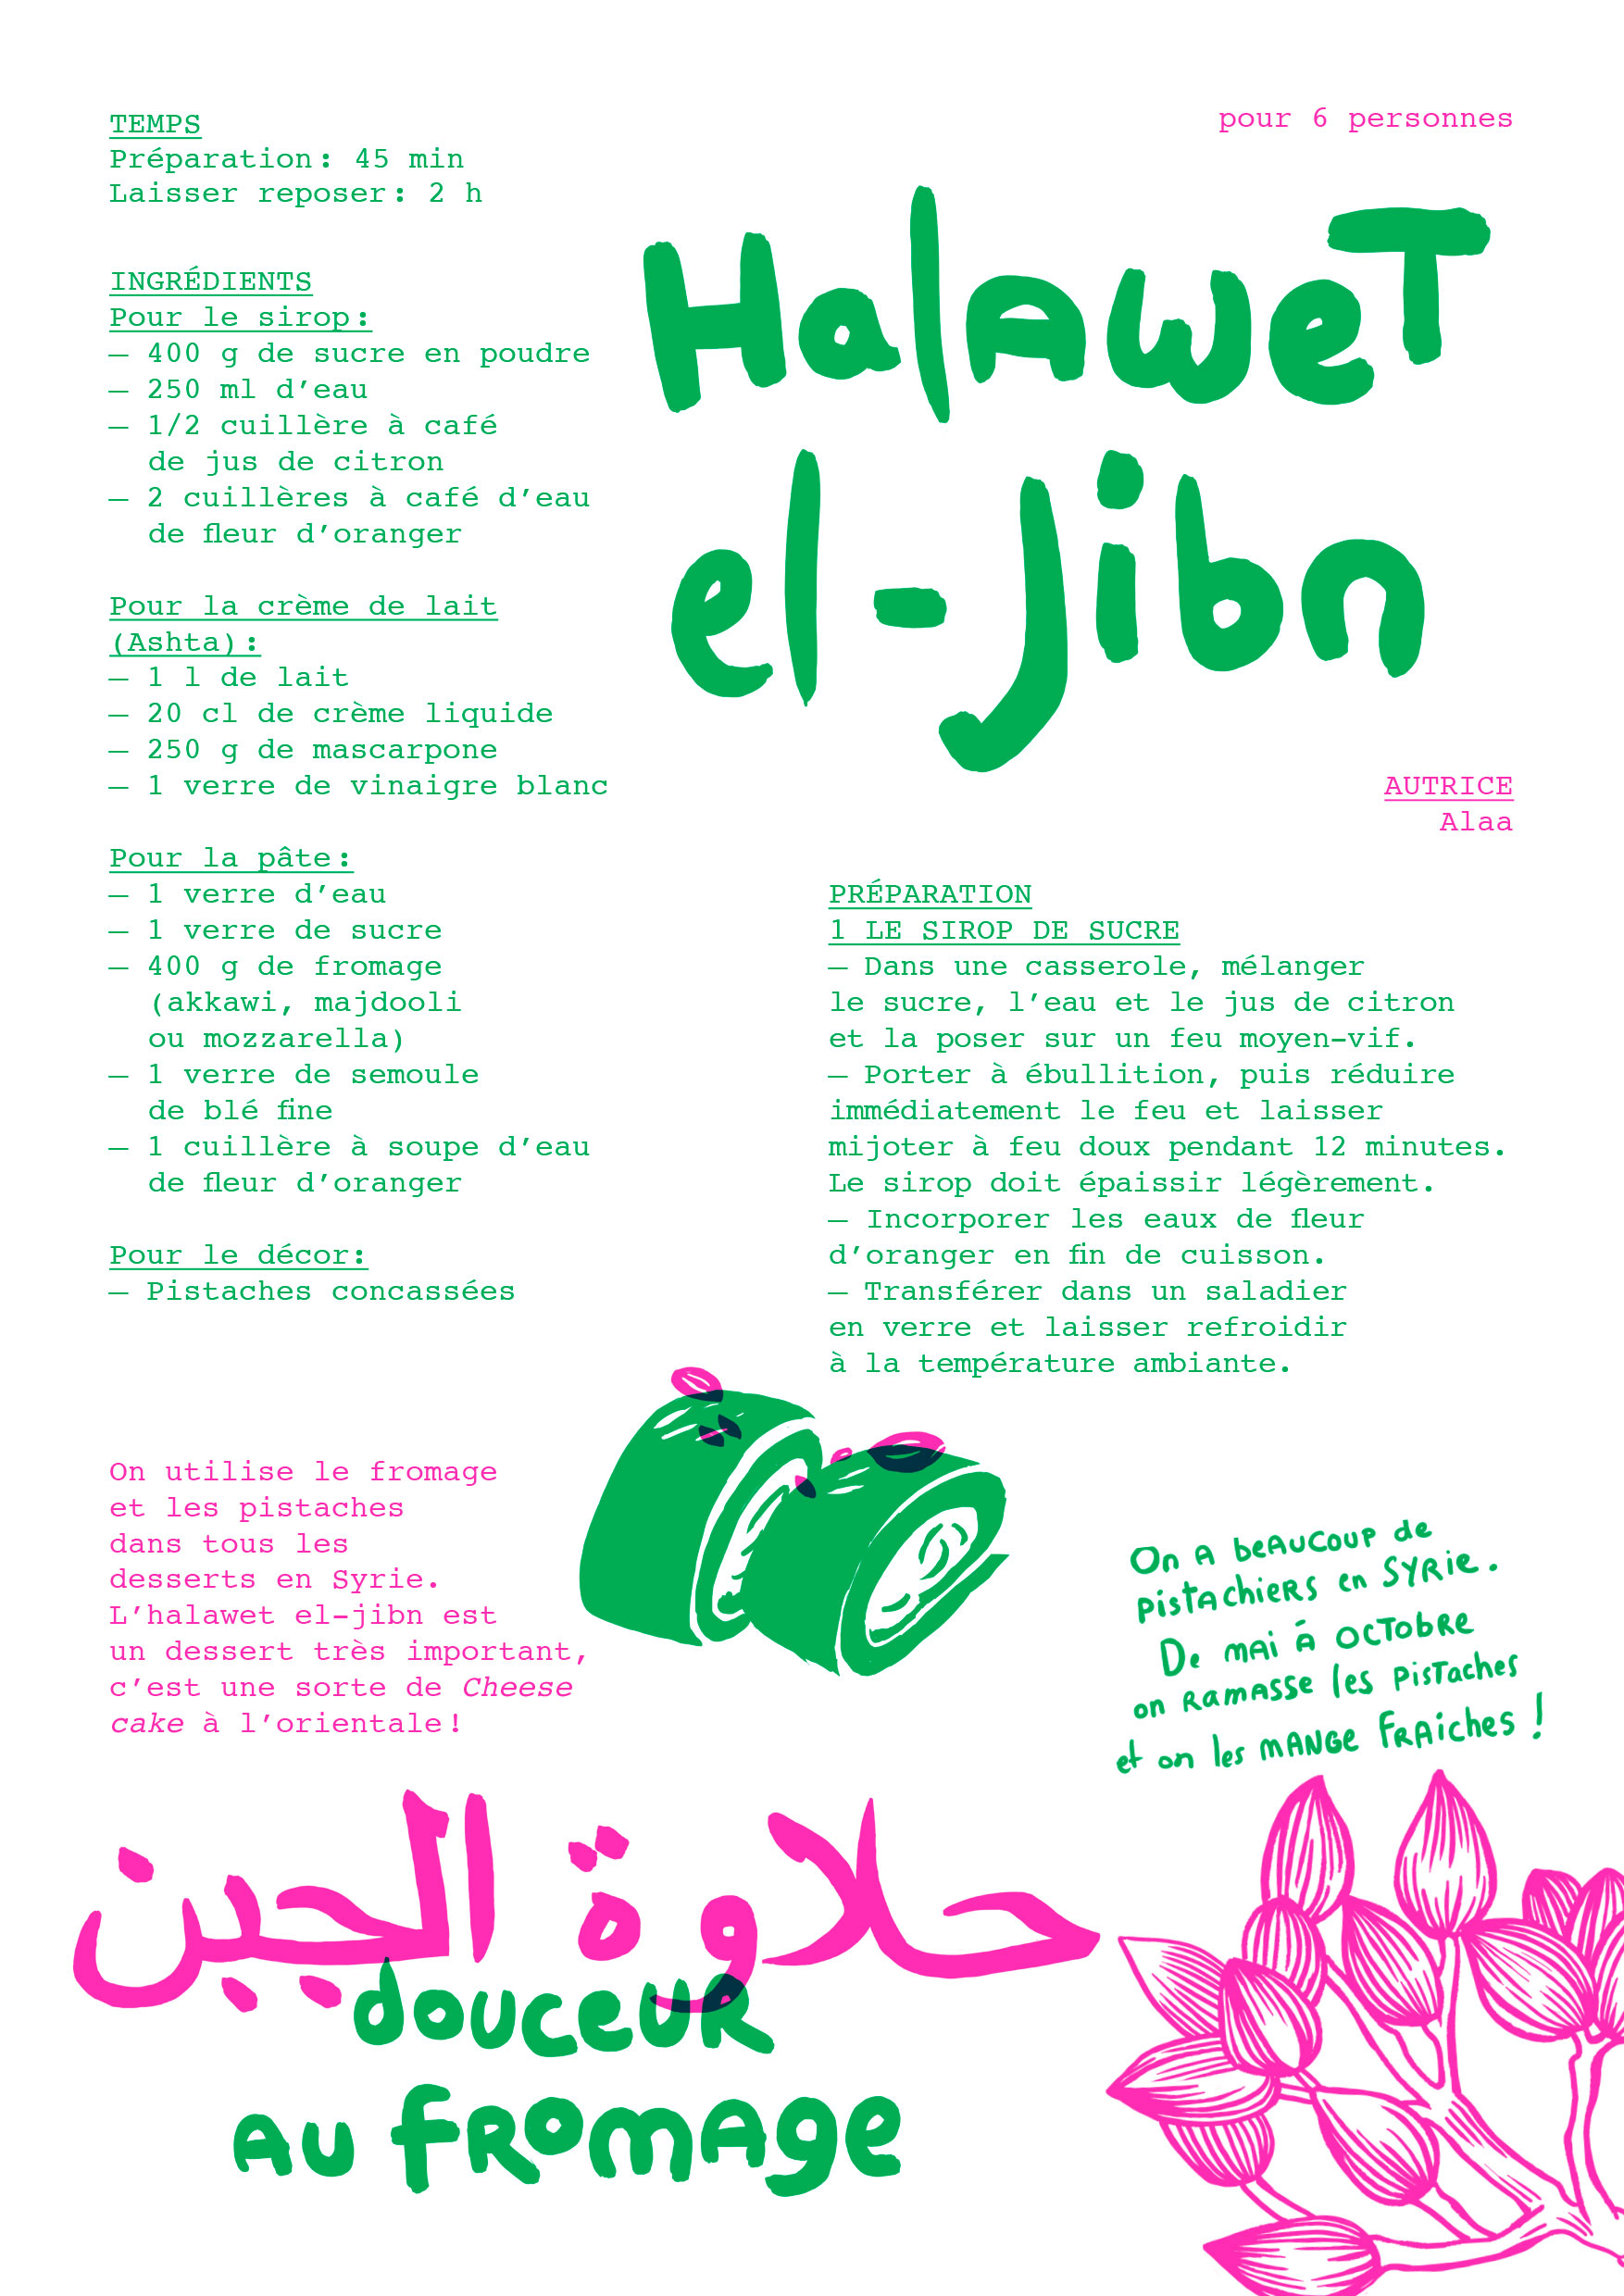 TEMPS
Préparation : 45 min
Laisser reposer : 2 h
INGRÉDIENTS
Pour le sirop :
— 400 g de sucre en poudre
— 250 ml d’eau
— 1/2 cuillère à café
de jus de citron
— 2 cuillères à café d’eau
de fleur d’oranger
Pour la crème de lait
(Ashta) :
— 1 l de lait
— 20 cl de crème liquide
— 250 g de mascarpone
— 1 verre de vinaigre blanc
Pour la pâte :
— 1 verre d’eau
— 1 verre de sucre
— 400 g de fromage
(akkawi, majdooli
ou mozzarella)
— 1 verre de semoule
de blé fine
— 1 cuillère à soupe d’eau
de fleur d’oranger
Pour le décor :
— Pistaches concassées
pour 6 personnes
Halawet
el-Jibn
AUTRICE
Alaa
PRÉPARATION
1 LE SIROP DE SUCRE
— Dans une casserole, mélanger
le sucre, l’eau et le jus de citron
et la poser sur un feu moyen-vif.
— Porter à ébullition, puis réduire
immédiatement le feu et laisser
mijoter à feu doux pendant 12 minutes.
Le sirop doit épaissir légèrement.
— Incorporer les eaux de fleur
d’oranger en fin de cuisson.
— Transférer dans un saladier
en verre et laisser refroidir
à la température ambiante.
On utilise le fromage
et les pistaches
dans tous les
desserts en Syrie.
L’halawet el-jibn est
un dessert très important,
c’est une sorte de Cheese
cake à l’orientale !
On a beaucoup de
pistachiers en Syrie.
De mai à octobre
on ramasse les pistaches
et on les mange fraiches !
حلاوة الجبن
douceur
au fromage